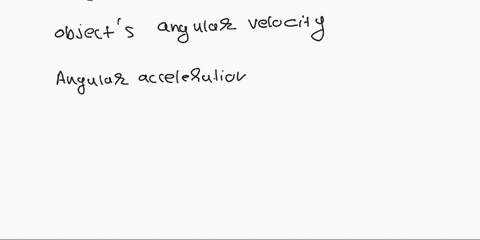 object's angular velocity
Angular acceleration